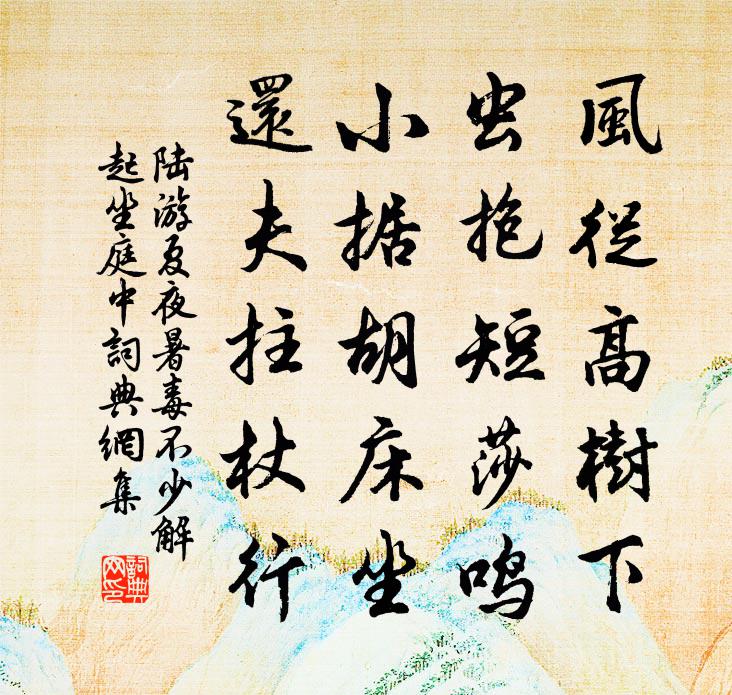 風從高樹下
虫抱短莎鳴
小据胡床坐
還夫拄杖行
陸游夏夜暑毒不少解
起坐庭中詞典網集
詞典
网印